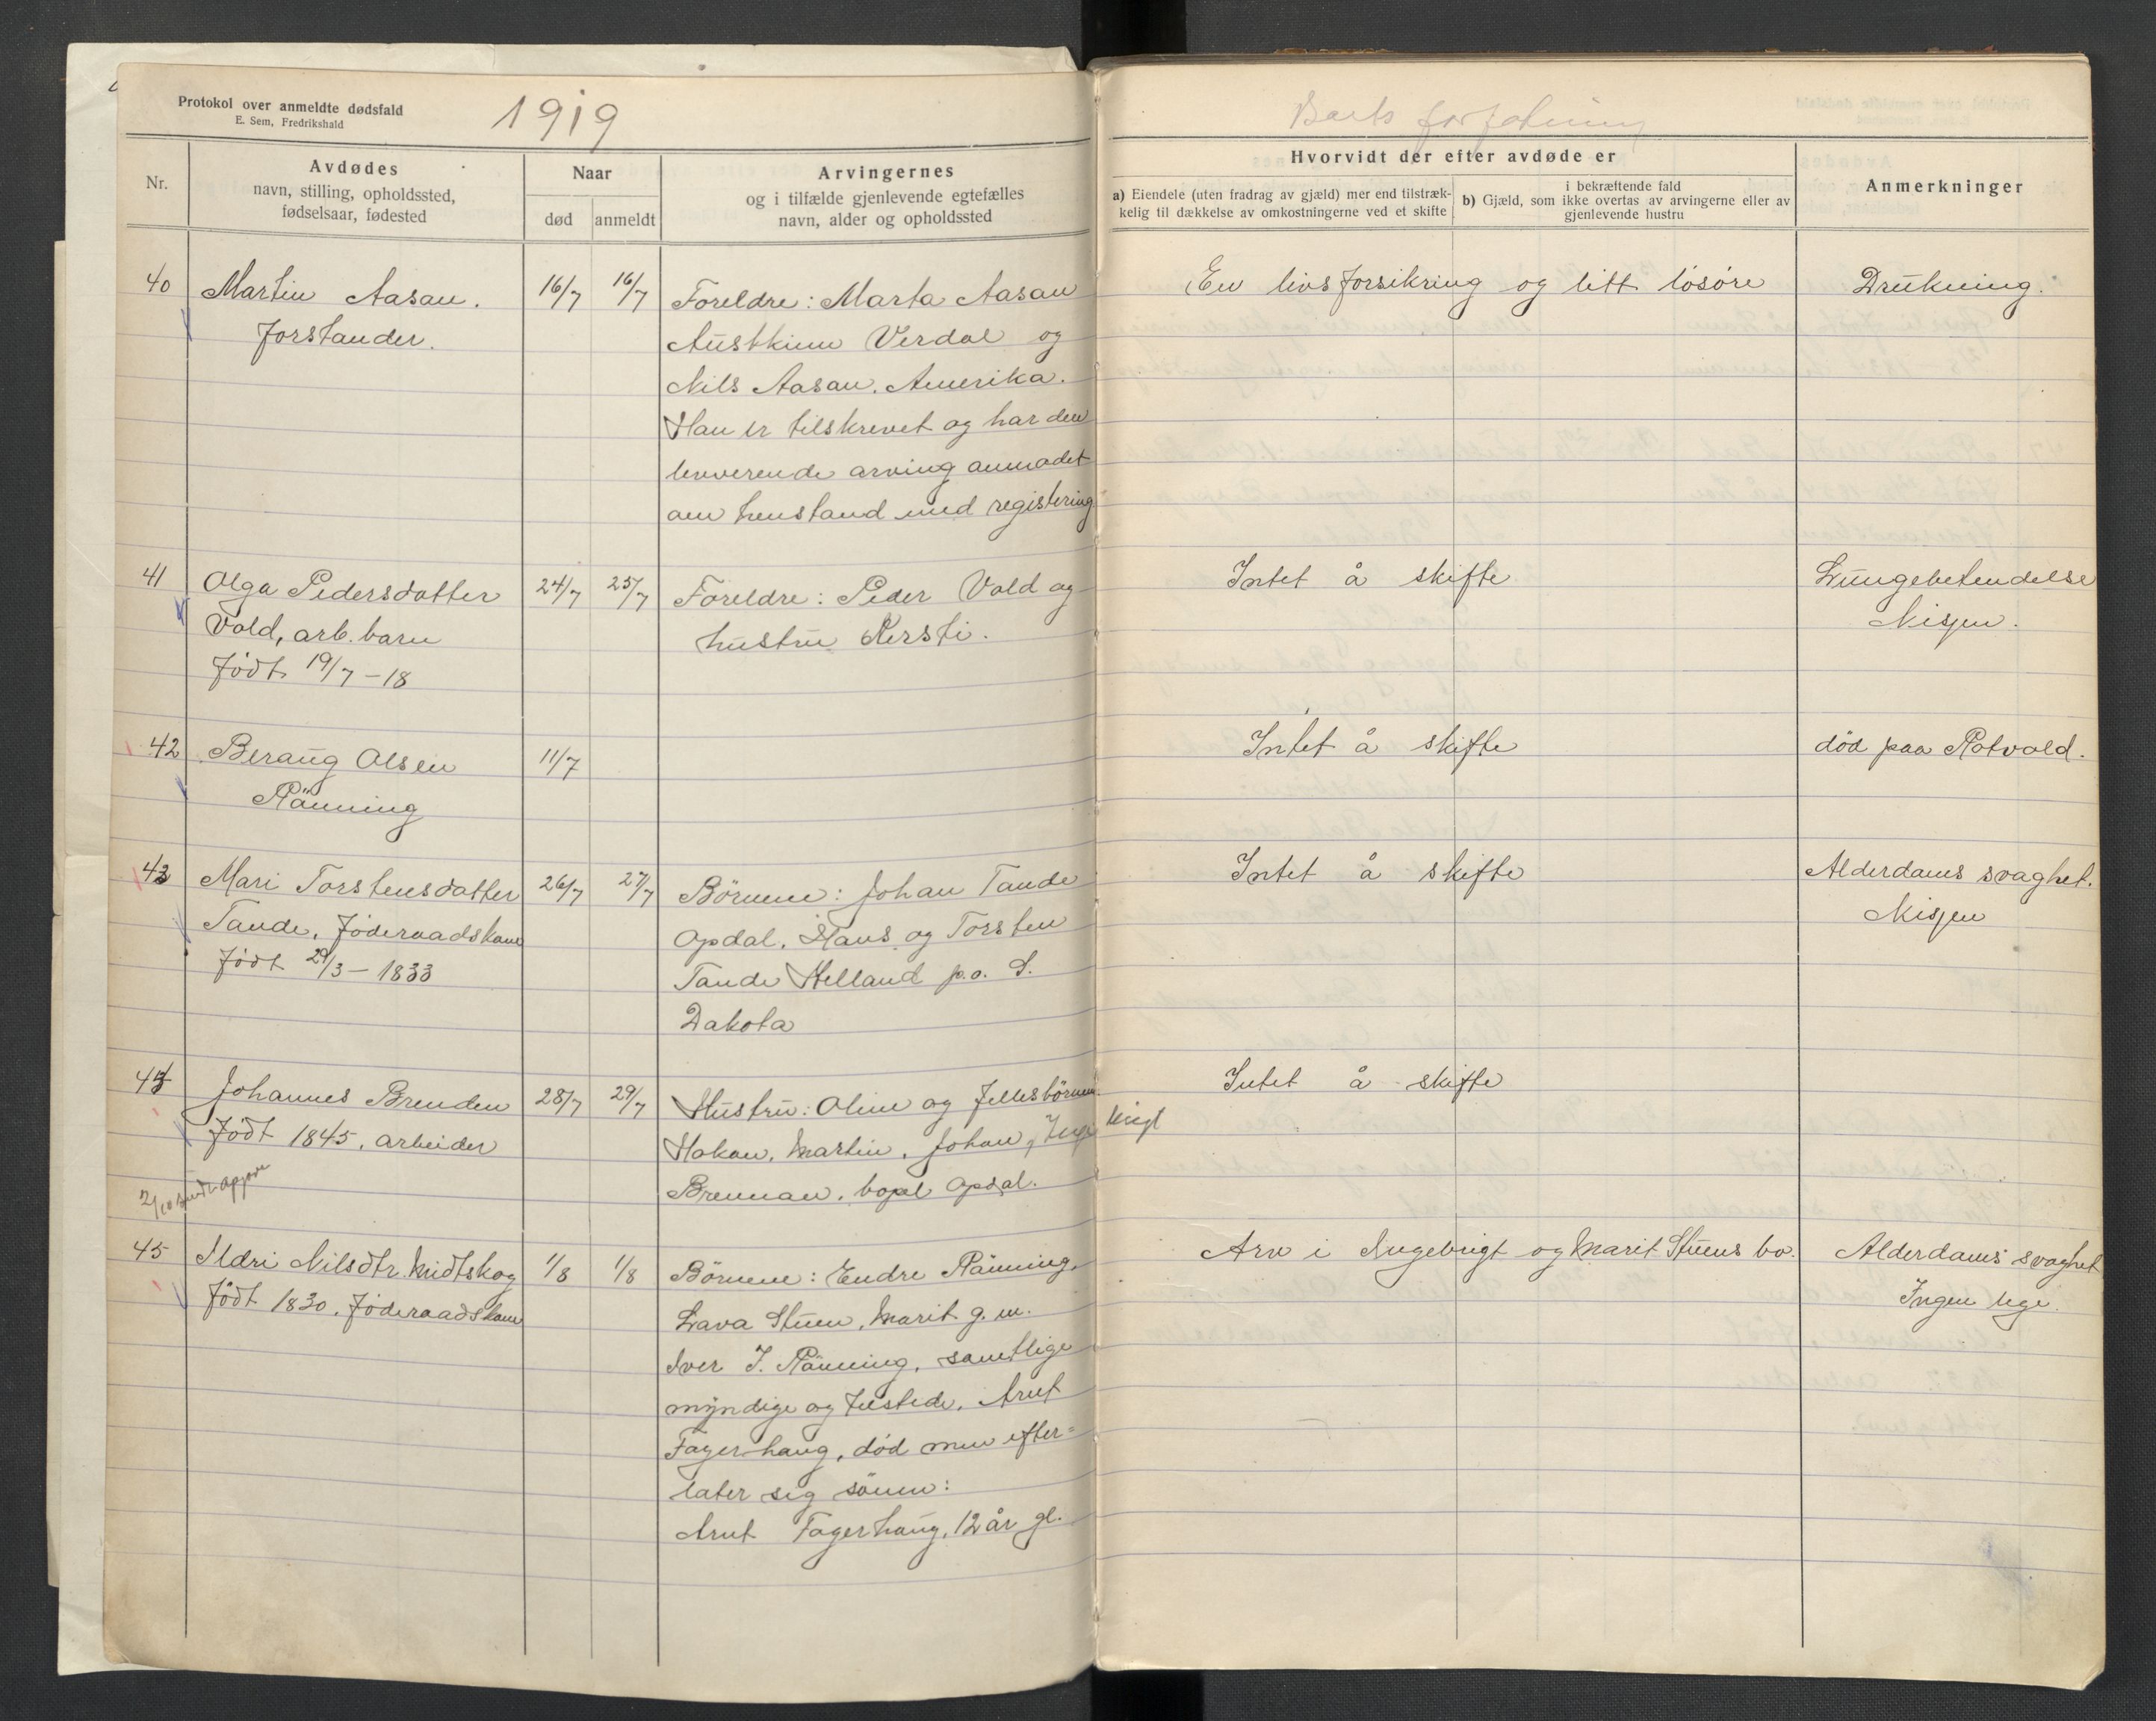 Protokol over anmeldte dødsfald
E. Sem, Fredrikshald
1919
Nr.
Avdødes
navn, stilling, opholdssted,
fødselsaar, fødested
Naar
død
anmeldt
Arvingernes
og i tilfælde gjenlevende egtefælles
navn, alder og opholdssted
Hvorvidt der efter avdøde er
a) Eiendele (uten fradrag av gjæld) mer end tilstræk-
kelig til dækkelse av omkostningerne ved et skifte
i bekræftende fald
b) Gjæld, som ikke overtas av arvingerne eller av
gjenlevende hustru
Anmerkninger
40
Martin Aasan.
Forstander.
16/7
16/7
Foreldre: Marta Aasan
Austkinn Verdal og
Nils Aasan. Amerika.
Han er tilskrevet og har den
levverende arving anmodet
om henstand med registering
En livsforsikring og litt løsøre
Drukning.
41
Olga Pedersdatter
Vold, arb. barn
Født 19/7 - 18
24/7
25/7
Foreldre: Peder Vold og
hustru Kersti.
Intet å skifte
Lungebetendelse
Misjen.
42
Beraug Olsen
Rönning
11/7
Intet å skifte
död paa Rotvold.
43
Mari Torstensdatter
Tande, Föderaadskone
Födt 29/3 - 1833
26/7
27/7
Börnene: Johan Tande
Opdal, Hans og Torsten
Tande Helland p.o. S.
Dakota
Intet å skifte
Alderdoms svaghet.
Misjen
44
Johannes Brenden
Födt 1845, arbeider
28/7
29/7
Hustru: Oline og fellesbörnene
Hakon, Martin, Johan, Inge brigt
Brennan, bopel Opdal.
Intet å skifte
2/10
45
Aldri Nilsdtr. Midtskog
Födt 1830. Föderaadskone
1/8
1/8
Börnene: Endre Rönning,
Lava Stuen, Marit g. m.
Iver J. Rönning, samtlige
myndige og tilstede. Arnt
Fagerhaug, död men efter-
later sig sönnen:
Arnt Fagerhaug, 12 år gl.
Arv i Ingebrigt og Marit Stuens bo.
Alderdoms svaghet
Ingen lege.